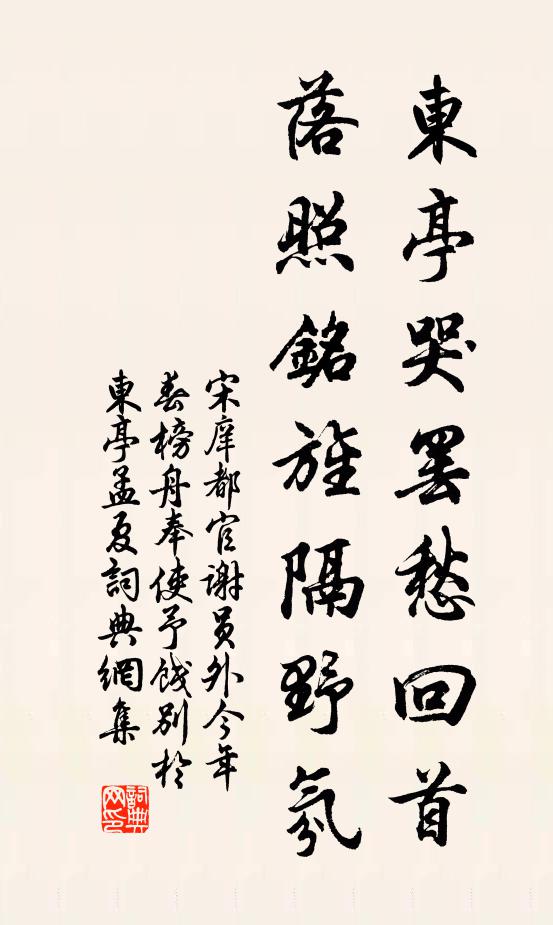 東亭哭罷愁回首
落照銘旌隔野氛
宋庠都官謝員外今年
春榜舟奉使予餞別於
東亭孟夏詞典網集
詞典网印